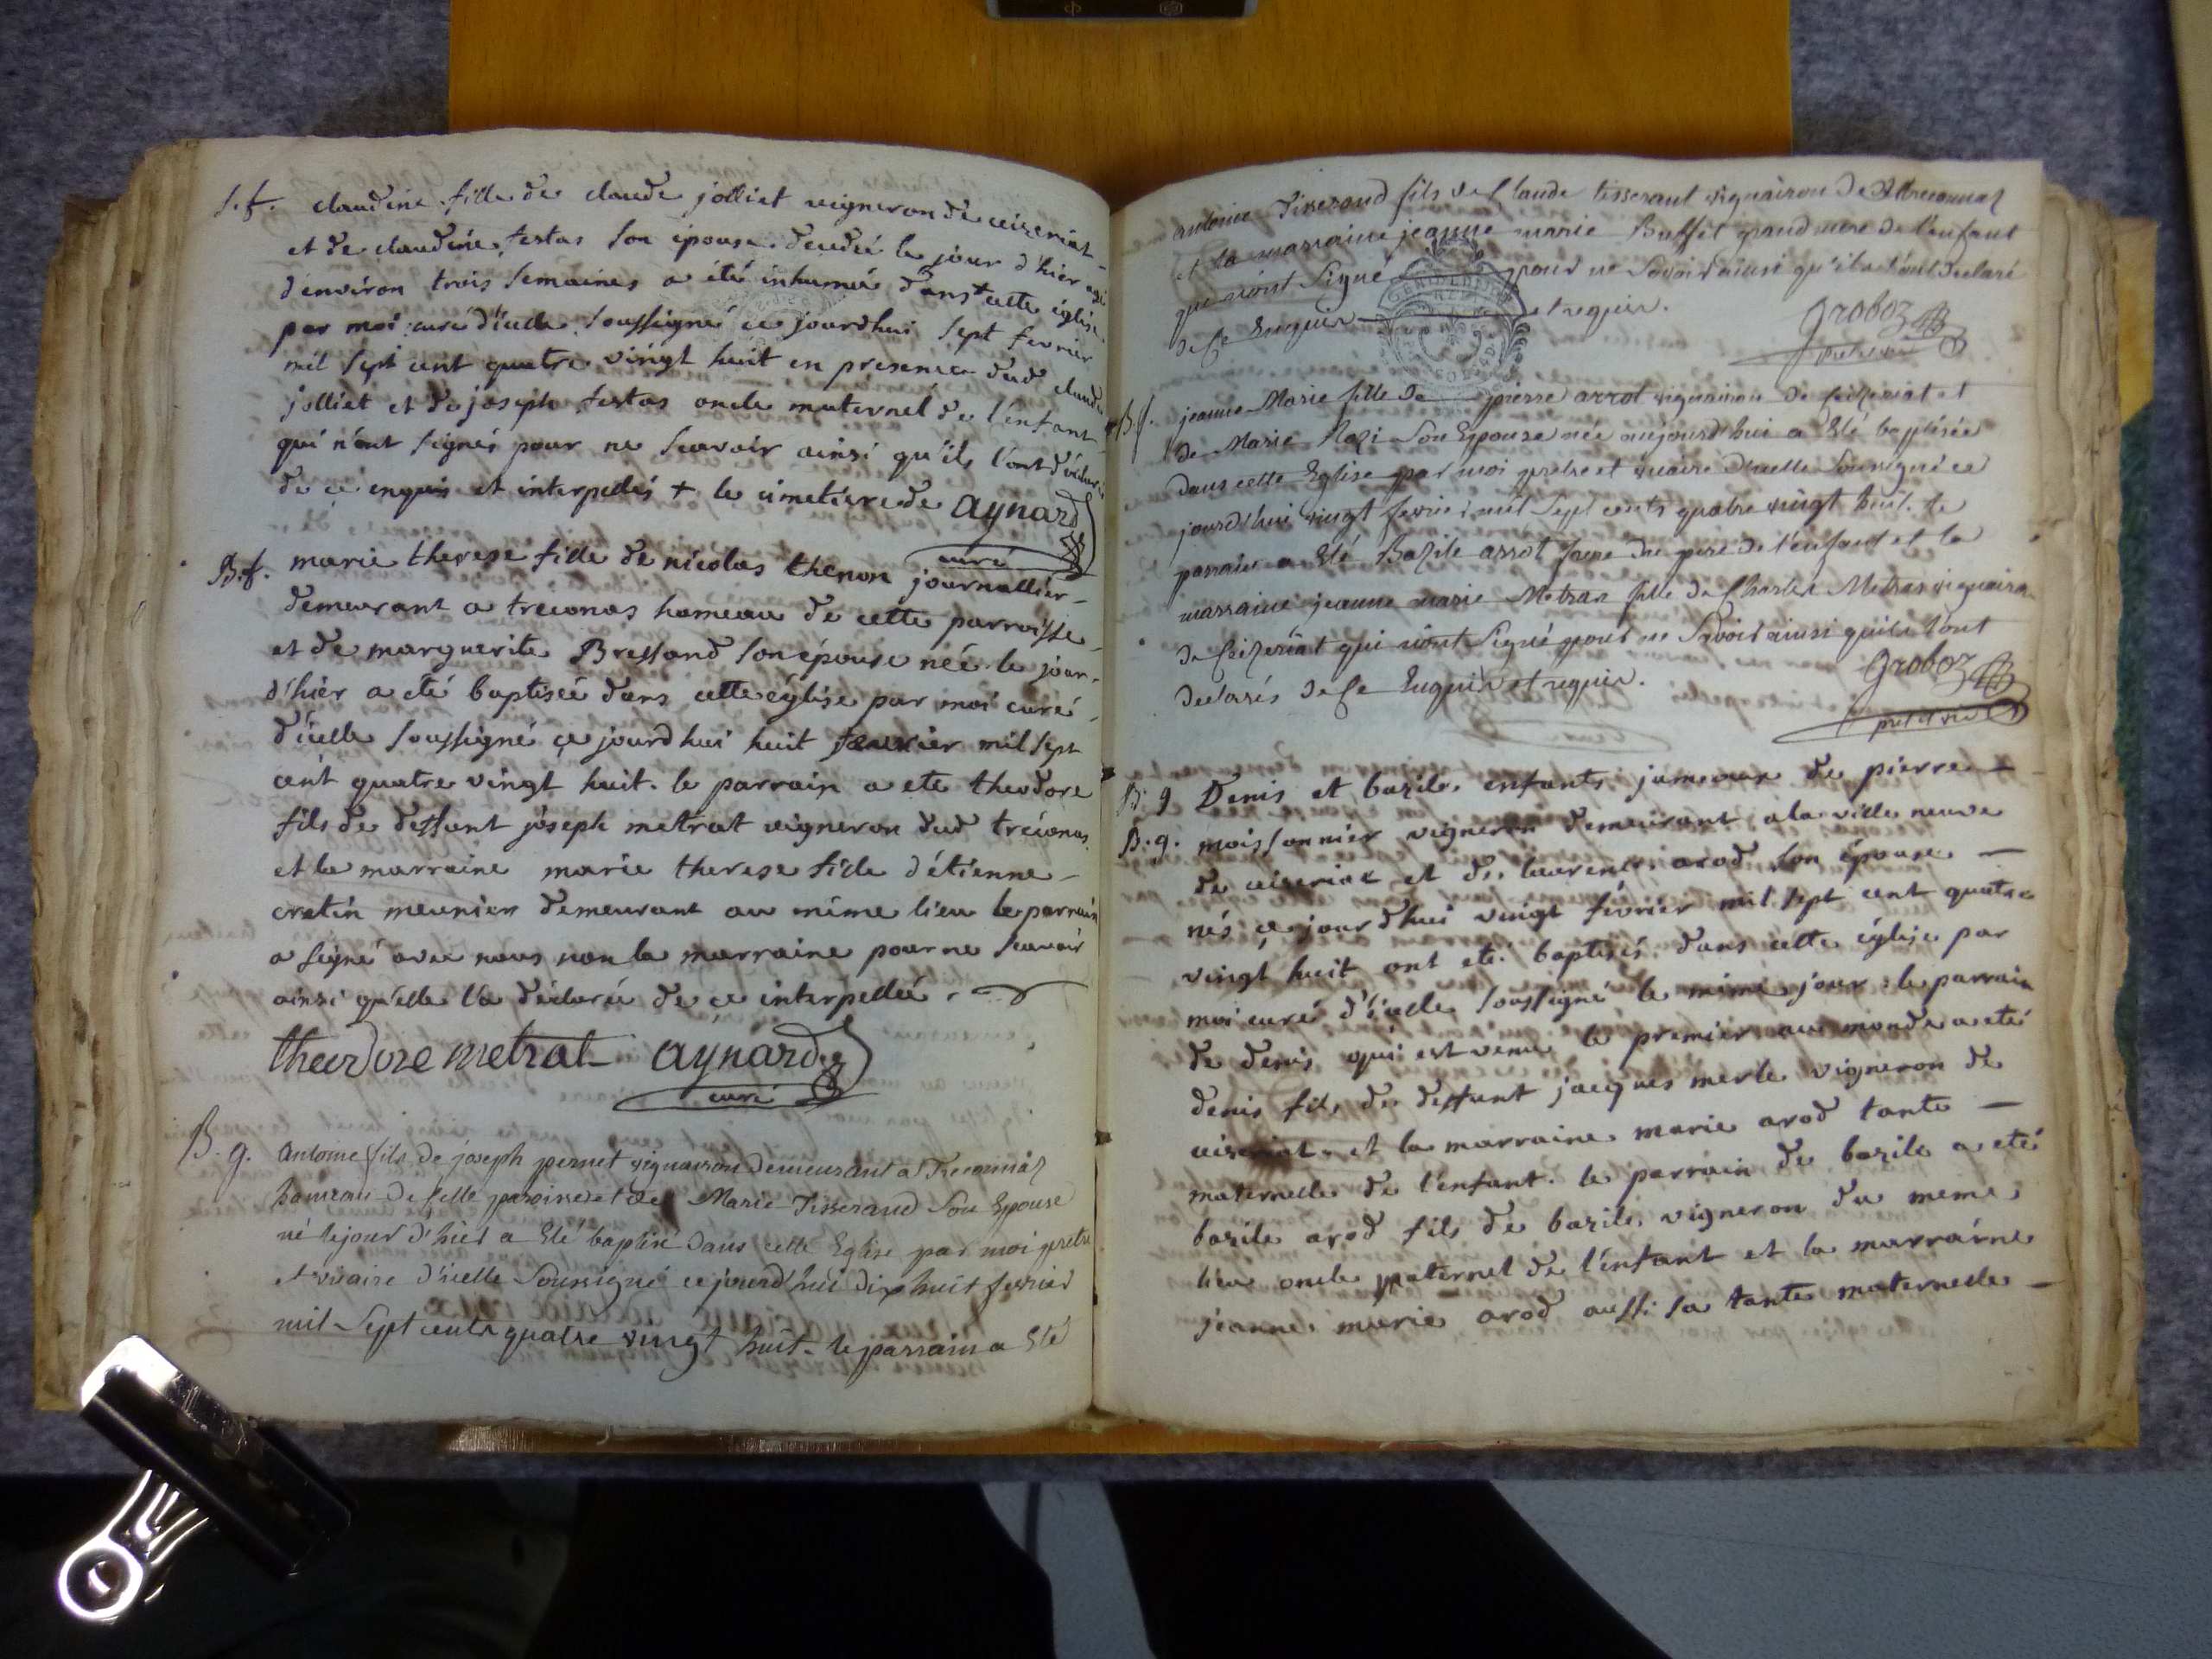 S.f. claudine fille de claude jolliet vigneron de ceizeriat
et de claudine testas son épouse deudée le jour d'hier agé
d'environ trois semaines a été inhumée dans + cette église
par moi curé d'icelle soussigné ce jourdhui sept fevrier
mil sept cent quatre vingt huit en presence dud claude
jolliet et de joseph testas oncle maternel de l'enfant
qui n'ont signés pour ne scavoir ainsi qu'ils l'ont déclaré
de ce enquis et interpellés + le cimetiere de aynard
curé
B.f. marie therese fille de nicolas thenon journallier
demeurant a treconas hameau de cette parroisse
et de marguerite Bressand son épouse née le jour
d'hier a été baptisée dans cette église par moi curé
d'icelle soussigné ce jourdhui huit fevrier mil sept
cent quatre vingt huit. le parrain a ete theodore
fils de deffunt joseph metrat vigneron dud treconas
et la marraine marie therese fille d'étienne
cretin meunier demeurant au même lieu le parrain
a signé avec nous non la marraine pour ne scavoir
ainsi qu'elle l'a déclaré de ce interpellée.
theodore metrat aynard
curé
B. g. antoine fils de joseph pernet vignairon demeurant a Treconnas
hameau de cette paroisse et de Marie Tisserand son Epouse
né le jour d'hier a Eté baptisé dans cette Eglise par moi pretre
et vicaire d'icelle soussigné ce jourd'hui dix huit fevrier
mil sept cents quatre vingt huit. le parrain a Eté
antoine Tisserand fils de Claude tisserant vignairon de Treconnas
et la marraine jeanne marie Buffet grand mere de l'enfant
qui n'ont signé pour ne savoir ainsi qu'ils l'ont declaré
de ce Enquis et requis.
Groboz
B f. jeanne Marie fille de pierre arrot vignairon de Ceizeriat et
de Marie Nozi son Epouse née aujourd'hui a Eté baptisée
dans cette Eglise par moi pretre et vicaire d'icelle soussigné ce
jourd'hui vingt fevrier mil sept cents quatre vingt huit. le
parrain a Eté Bazile arrot frere du pere de l'enfant et la
marraine jeanne marie Metras fille de Charles Metras vignairon
de Ceizeriat qui n'ont signé pour ne savoir ainsi qu'ils l'ont
declarés de ce Enquis et requis. Groboz
B. g Denis et bazile enfants jumeaux de pierre
B. g. moissonnier vigneron demeurant a la ville neuve
de ceizeriat et de laurence arod son épouse
nés ce jourdhui vingt février mil sept cent quatre
vingt huit ont eté baptisés dans cette église par
moi curé d'icelle soussigné le même jour. le parrain
de denis qui est venu le premier au monde a eté
denis fils de deffunt jacques merle vigneron de
ceizeriat et la marraine marie arod tante
maternelle de l'enfant. le parrain de bazile a eté
bazile arod fils de bazile vigneron du meme
lieu oncle paternel de l'enfant et la marraine
jeanne marie arod aussi sa tante maternelle